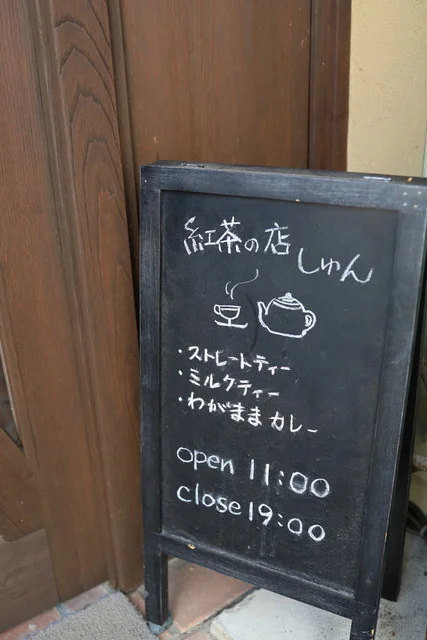 紅茶の店
しゅん
・ストレートティー
・ミルクティー
・わがままカレー
open 11:00
close 19:00